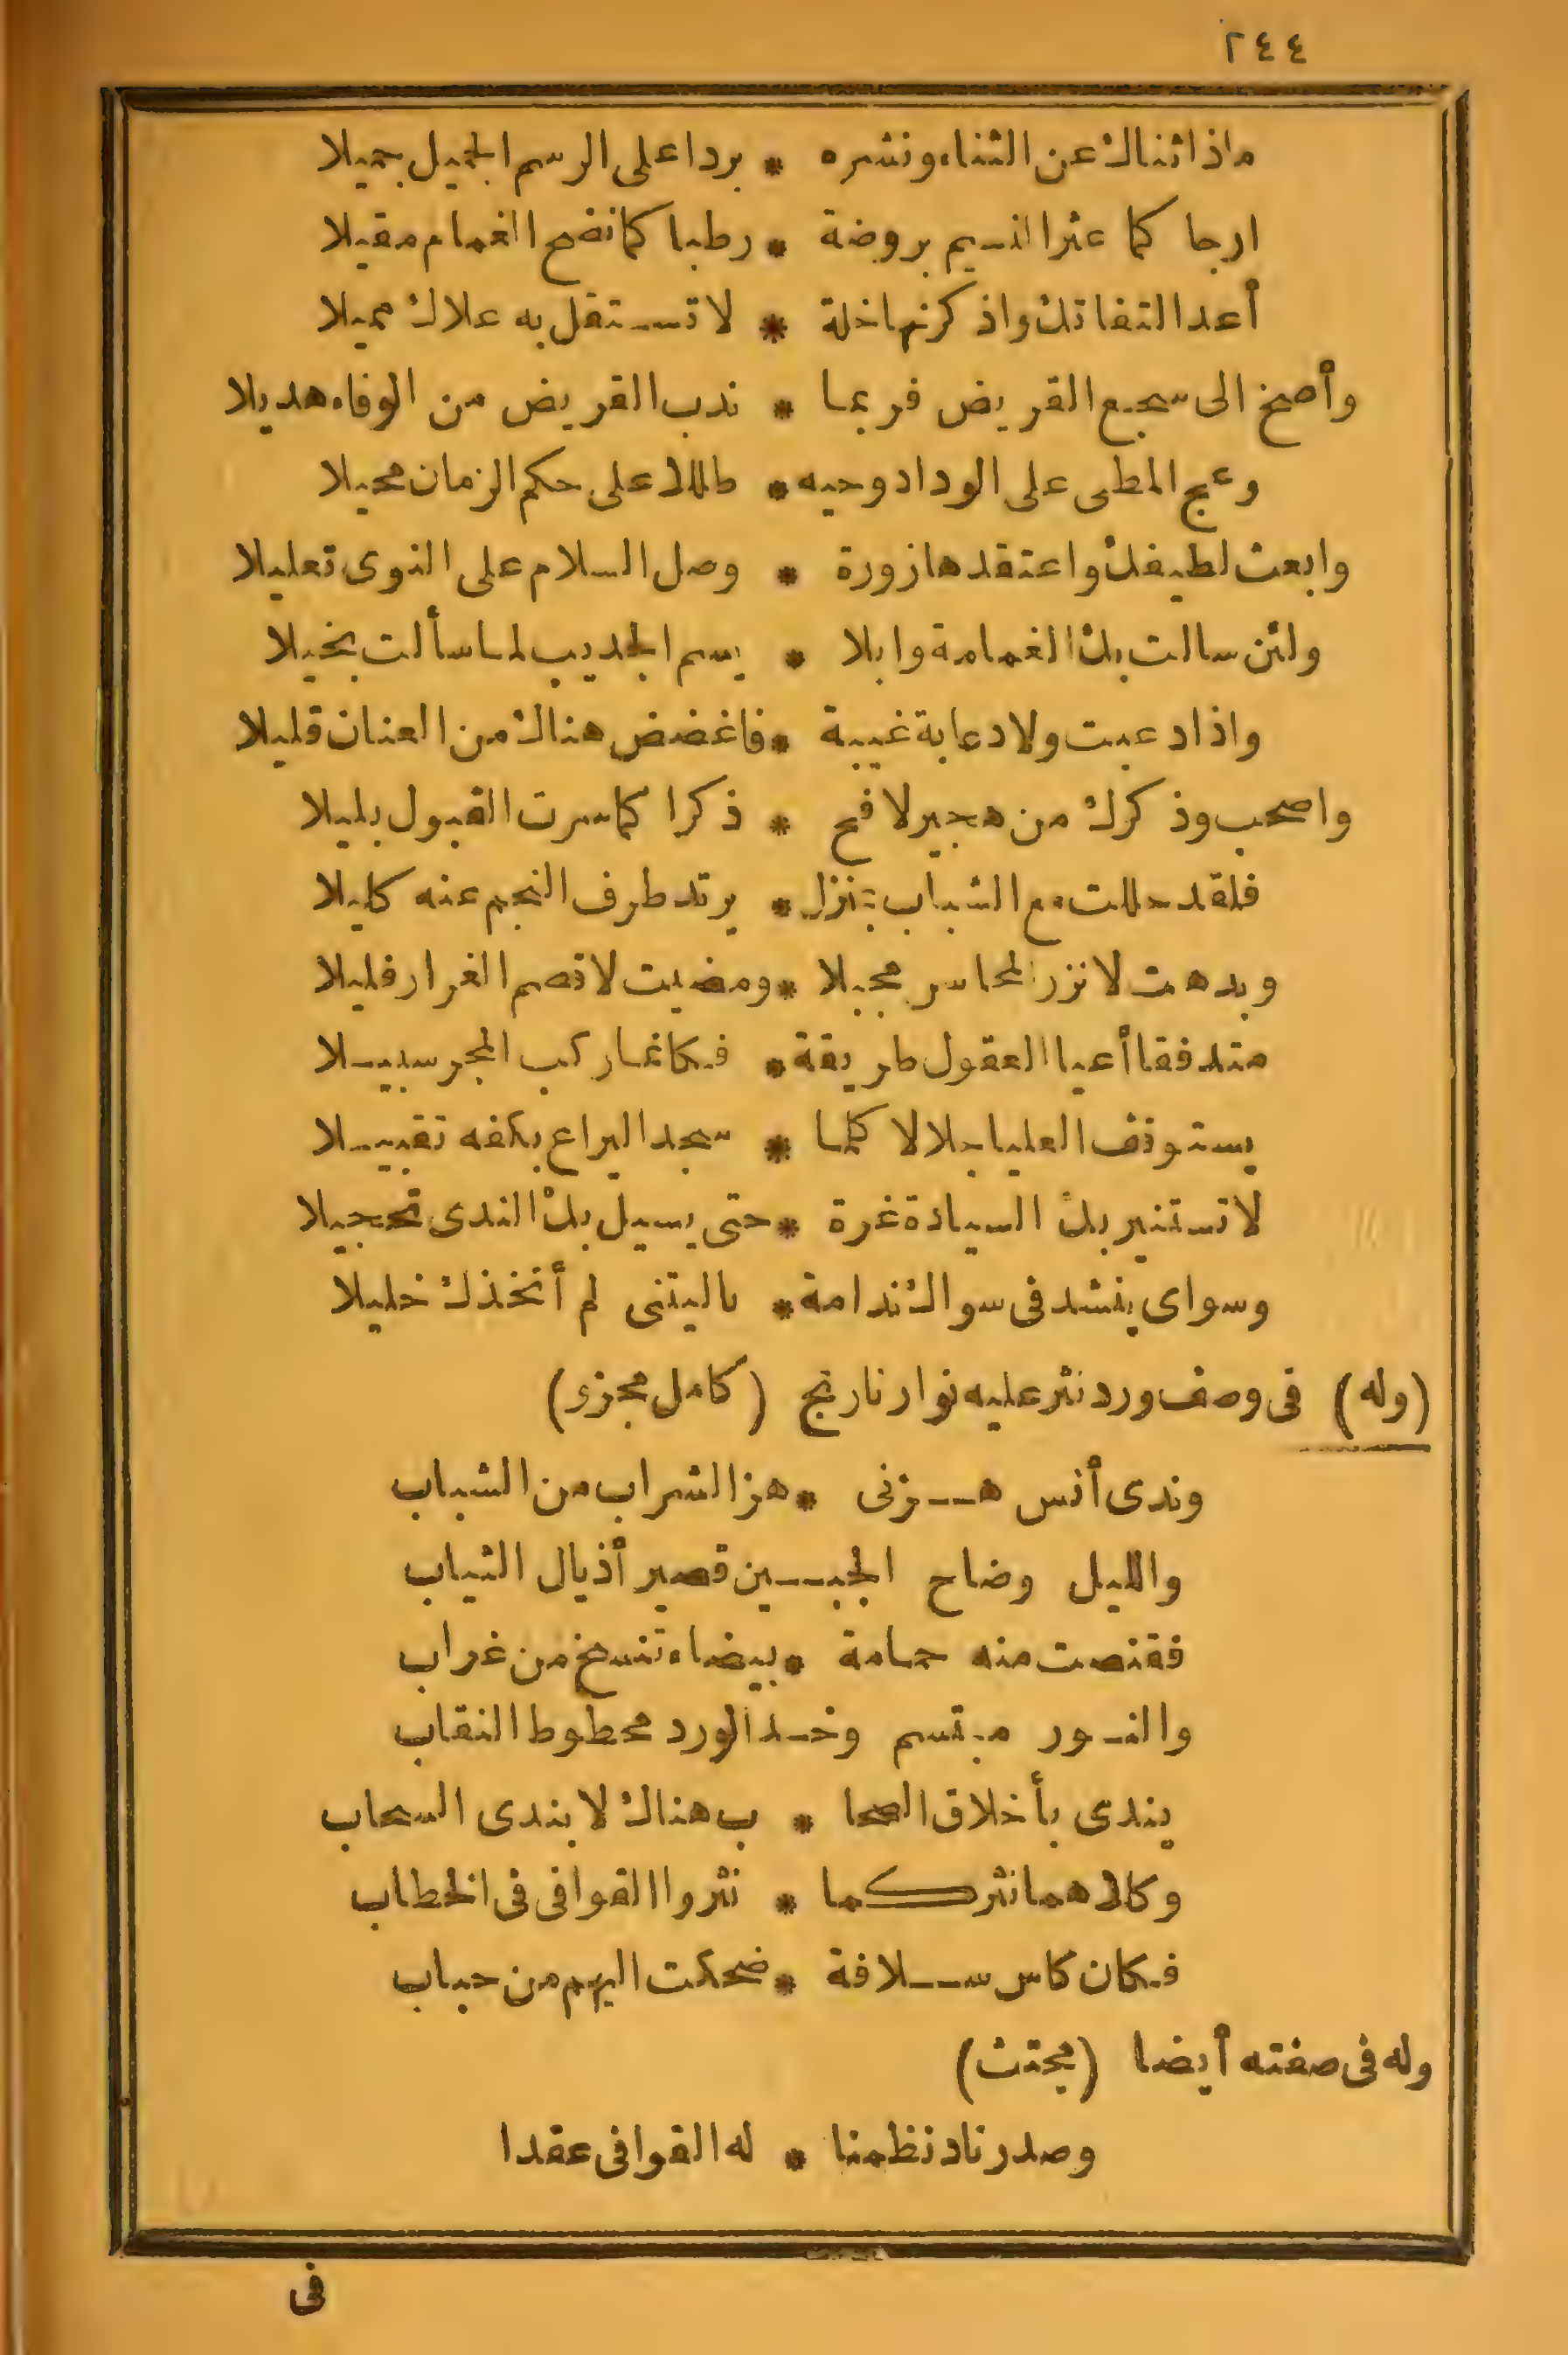 ٢٤٤
ماذا ثناك عن الثناء ونشره * برداعلى الرسم الجميل جميلا
ارجا كما عثرالنسيم بروضة * رطبا كمانفح الغمام مقيلا
أعد التفاتك واذكرنها خلة * لا تستقل به علاك مميلا
وأصخ الى سجع القريض فربما * ندب القريض من الوفاء هديلا
وعج المطى على الوداد وحيه * طللا على حكم الزمان محيلا
وابعث لطيفك واعتقدها زورة * وصل السلام على النوى تعليلا
ولئن سالت بك الغمامة وابلا * يسم الجديب لما سألت بخيلا
واذا دعبت ولا دعابة غيبة * فاغضض هناك من العنان قليلا
واصحب وذكرك من هجير لافح * ذكرا كما سرت القبول بليلا
فلقد حللت مع الشباب بمنزل * يرتد طرف النجم عنه كليلا
وبدهت لا نزر المحاسر مجبلا * ومضيت لا قصم الغرار فليلا
متدفقا أعيا العقول طريقة * فكانما ركب المجر سبيـلا
يستوقف العليا جلالا كلما * سجد اليراع بكفه تقبيـلا
لا تستنير بك السيادة غرة * حتى يسيل بك الندى تحجيلا
وسواى ينشد فى سواك ندامة * ياليتنى لم أتخذك خليلا
(وله) فى وصف ورد نثر عليه نوار نارنج (كامل مجزى)
وندى أنس هـــزنى * هز الشراب من الشباب
والليل وضاح الجبـــين قصير أذيال الثياب
فقنصت منه حمامة * بيضاء تنسخ من غراب
والنـور مبتسم وخـد الورد محطوط النقاب
يندى بأخلاق الصحا * ب هناك لا بندى السحاب
وكلاهما نثر كما * نثروا القوافى فى الخطاب
فكان كاس ســـلافة * ضحكت اليهم من حباب
وله فى صفته أيضا (مجتث)
وصدر ناد نظمنا * له القوافى عقدا
فى